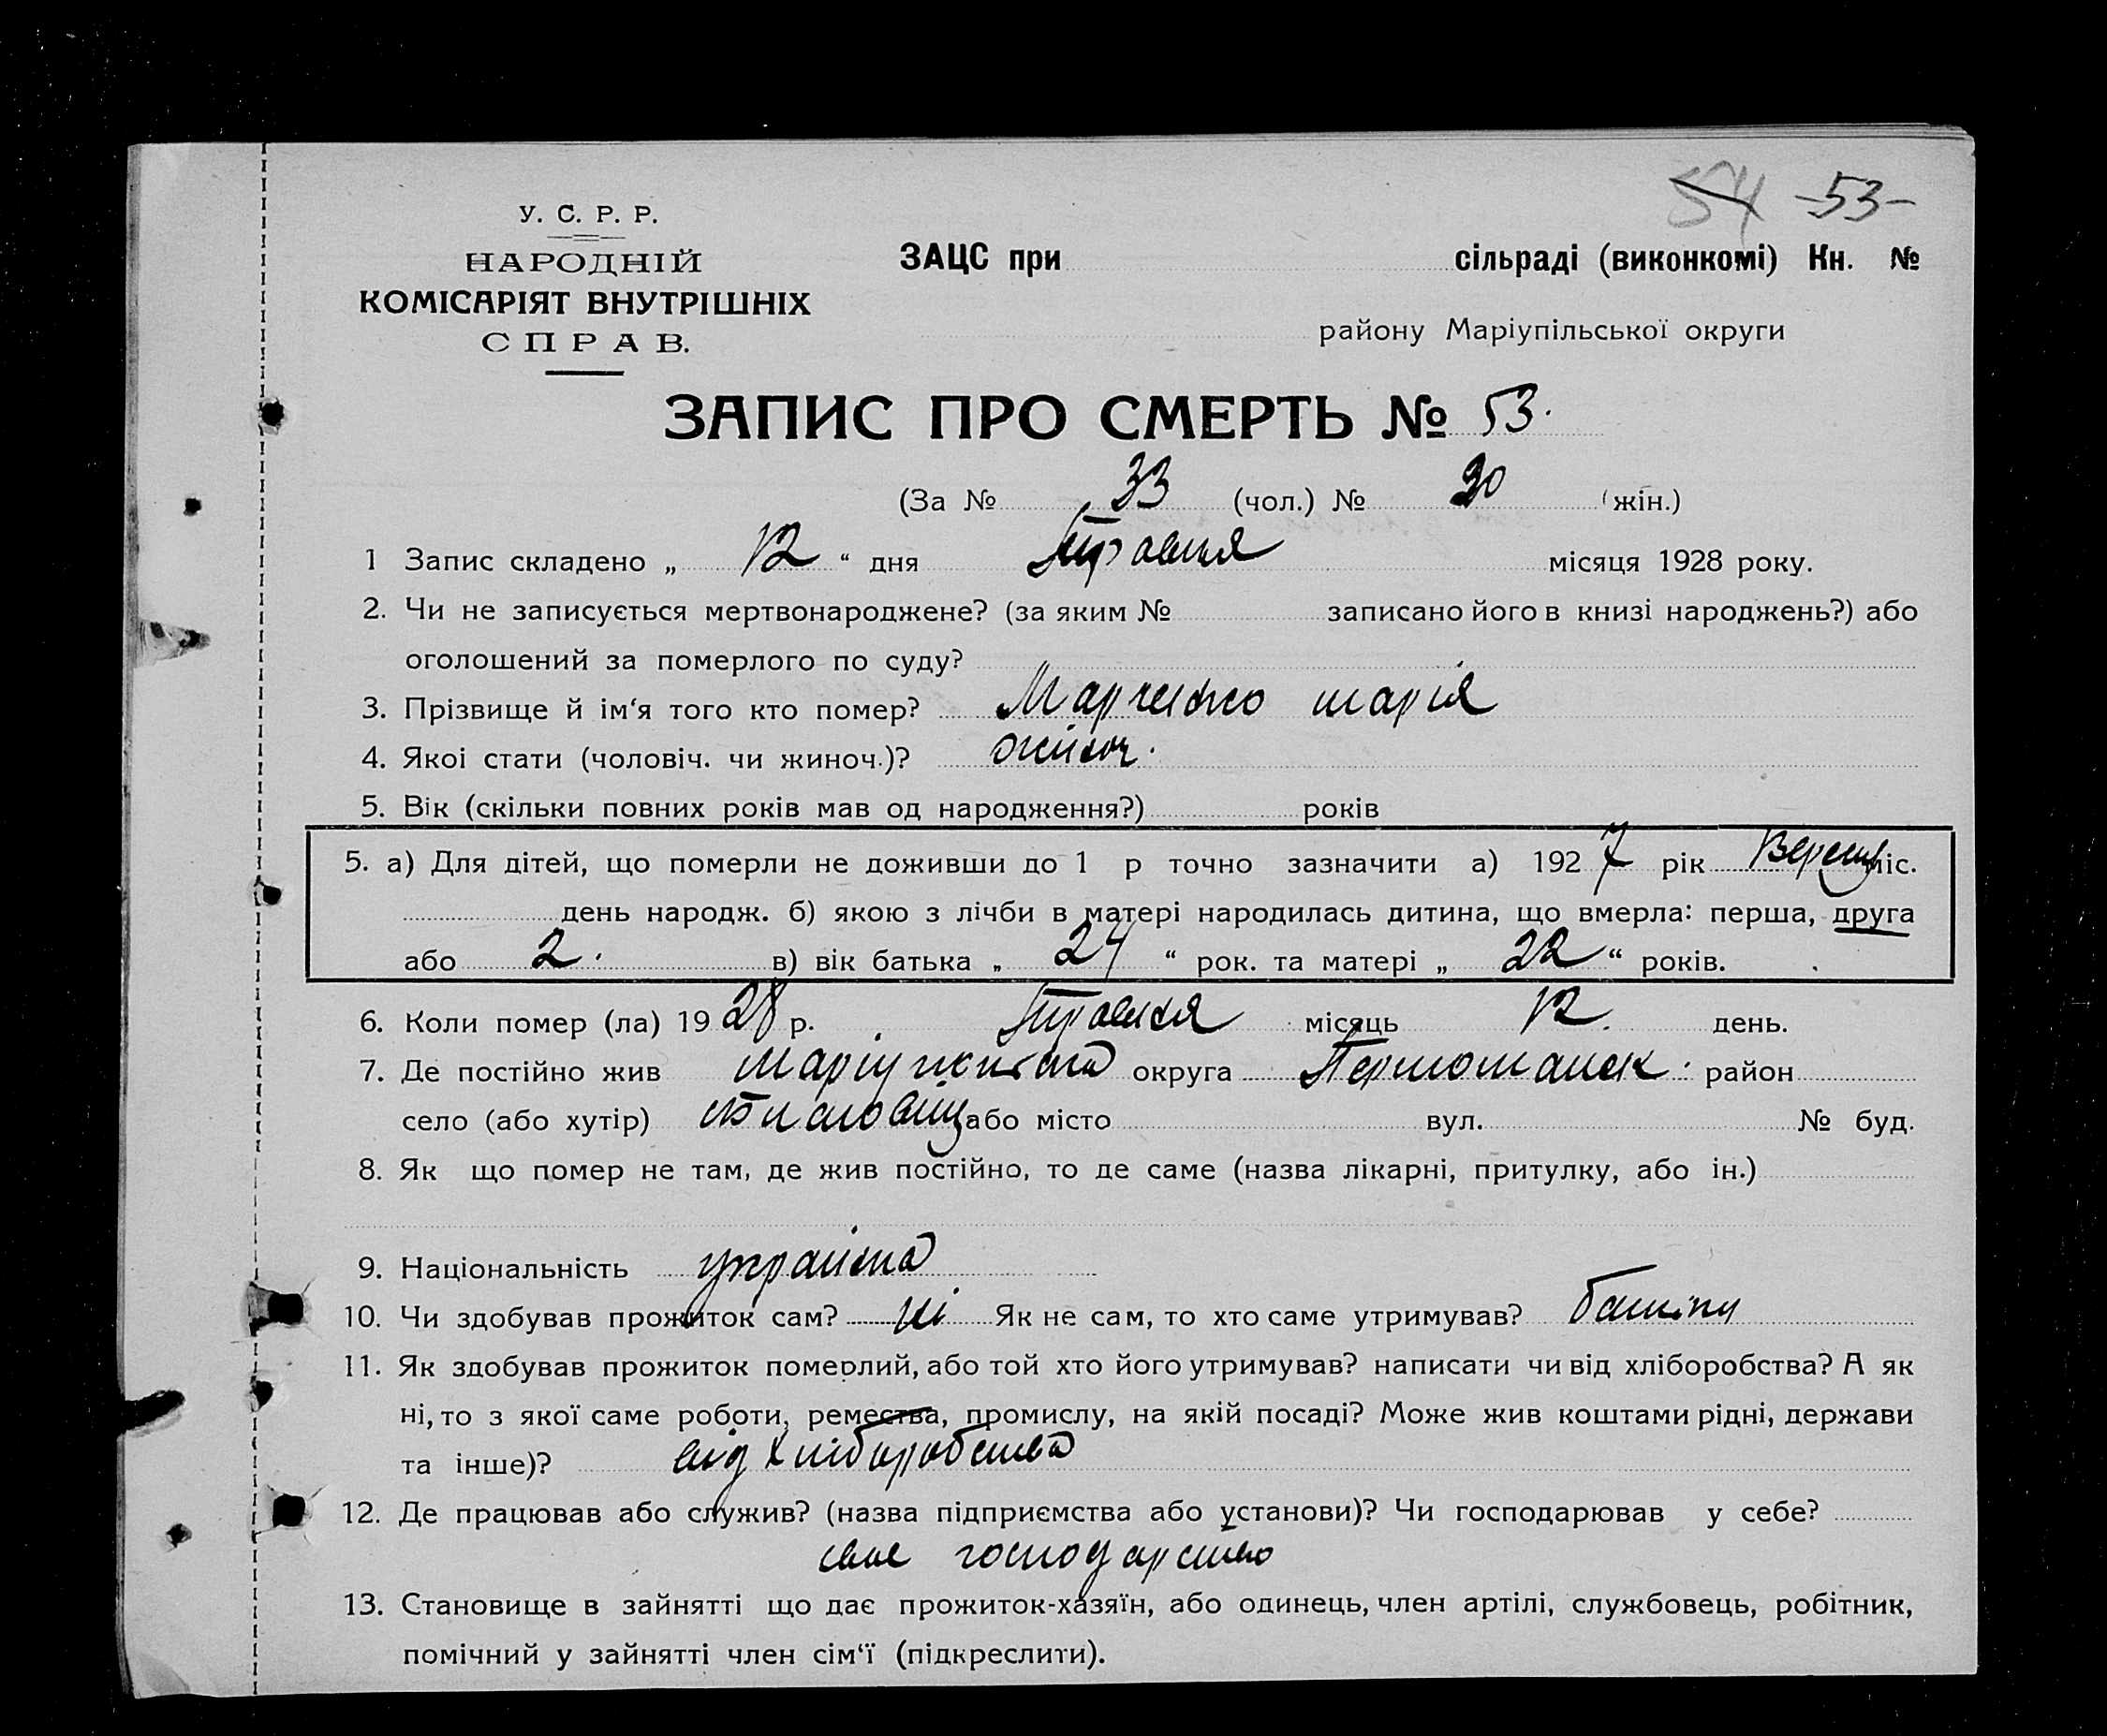 54 -53-
У. С. Р. Р.
НАРОДНІЙ
КОМІСАРІЯТ ВНУТРІШНІХ
СПРАВ.
ЗАЦС при сільраді (виконкомі) Кн. №
району Маріупільської округи
ЗАПИС ПРО СМЕРТЬ № 53.
(За № 33 (чол.) № 20 (жін.)
1 Запис складено „ 12 “ дня Травня місяця 1928 року.
2. Чи не записується мертвонароджене? (за яким № записано його в книзі народжень?) або
оголошений за померлого по суду?
3. Прізвище й ім‘я того кто помер? Марченко марія
4. Якоі стати (чоловіч. чи жиноч.)? жіноч.
5. Вік (скільки повних років мав од народження?) років
5. а) Для дітей, що померли не доживши до 1 р точно зазначити а) 1927 рік Вересня міс.
день народж. б) якою з лічби в матері народилась дитина, що вмерла: перша, друга
або 2. в) вік батька „ 24 “ рок. та матері „ 22 “ років.
6. Коли помер (ла) 1928 р. Травня місяць 12. день.
7. Де постійно жив округа район
село (або хутір) або місто вул. № буд.
8. Як що помер не там, де жив постійно, то де саме (назва лікарні, притулку, або ін.)
9. Національність українка
10. Чи здобував прожиток сам? ні Як не сам, то хто саме утримував? батьки
11. Як здобував прожиток померлий, або той хто його утримував? написати чи від хліборобства? А як
ні, то з якої саме роботи, ремества, промислу, на якій посаді? Може жив коштами рідні, держави
та інше)? від хліборобства
12. Де працював або служив? (назва підприємства або установи)? Чи господарював у себе?
своє господарство
13. Становище в зайнятті що дає прожиток-хазяїн, або одинець, член артілі, службовець, робітник,
помічний у зайнятті член сім‘ї (підкреслити).